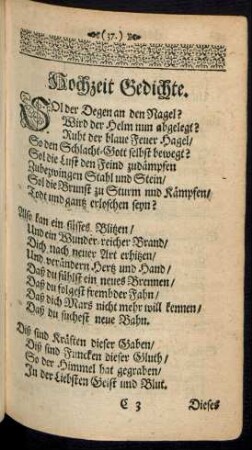 (37.)
Hochzeit Gedichte.
SOl der Degen an den Nagel?
Wird der Helm nun abgelegt?
Ruht der blaue Feuer Hagel/
So den Schlacht-Gott selbst bewegt?
Sol die Lust den Feind zudämpfen
Zubezwingen Stahl und Stein/
Sol die Brunst zu Sturm und Kämpfen/
Todt und gantz erloschen seyn?
Also kan ein süsses Blitzen/
Und ein Wunder-reicher Brand/
Dich nach neuer Art erhitzen/
Und verändern Hertz und Hand/
Daß du fühlst ein neues Brennen/
Daß du folgest frembder Fahn/
Daß dich Mars nicht mehr will kennen/
Daß du suchest neue Bahn.
Diß sind Kräften dieser Gaben/
Diß sind Funcken dieser Gluth/
So der Himmel hat gegraben/
In der Liebsten Geist und Blut.
C 3
Dieses